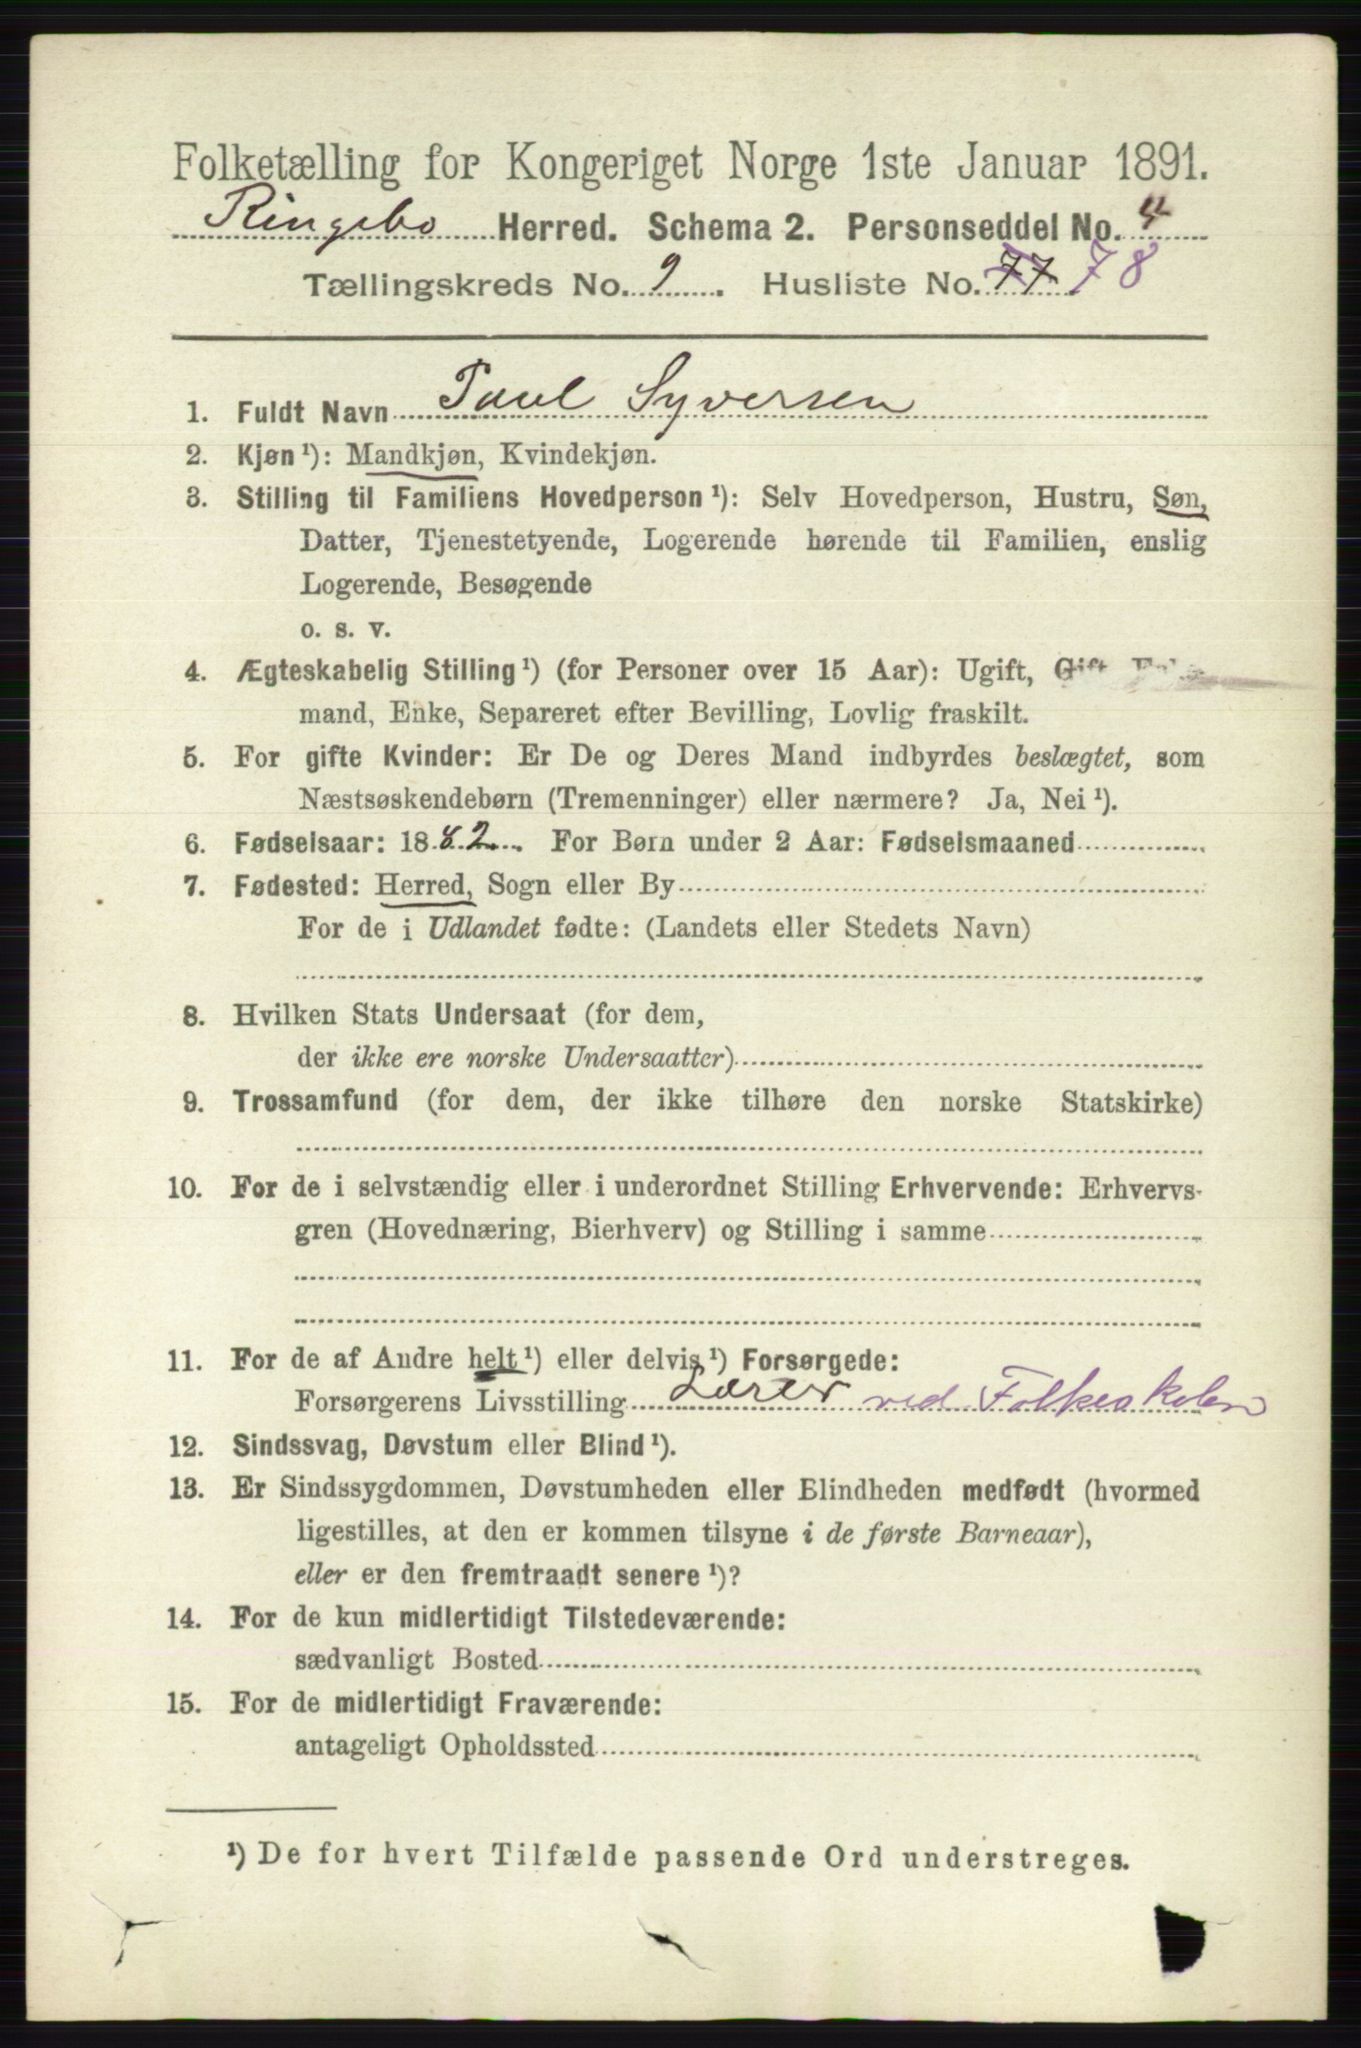 Folketælling for Kongeriget Norge 1ste Januar 1891.
Ringebo Herred. Schema 2. Personseddel No. 4
Tællingskreds No. 9. Husliste No. 77 78
1. Fuldt Navn Paul Syversen
2. Kjøn ¹): Mandkjøn, Kvindekjøn.
3. Stilling til Familiens Hovedperson ¹): Selv Hovedperson, Hustru, Søn,
Datter, Tjenestetyende, Logerende hørende til Familien, enslig
Logerende, Besøgende
o. s. v.
4. Ægteskabelig Stilling ¹) (for Personer over 15 Aar): Ugift, Gift,
mand, Enke, Separeret efter Bevilling, Lovlig fraskilt.
5. For gifte Kvinder: Er De og Deres Mand indbyrdes beslægtet, som
Næstsøskendebørn (Tremenninger) eller nærmere? Ja, Nei ¹).
6. Fødselsaar: 1882. For Børn under 2 Aar: Fødselsmaaned
7. Fødested: Herred, Sogn eller By
For de i Udlandet fødte: (Landets eller Stedets Navn)
8. Hvilken Stats Undersaat (for dem,
der ikke ere norske Undersaatter)
9. Trossamfund (for dem, der ikke tilhøre den norske Statskirke)
10. For de i selvstændig eller i underordnet Stilling Erhvervende: Erhvervs-
gren (Hovednæring, Bierhverv) og Stilling i samme
11. For de af Andre helt ¹) eller delvis ¹) Forsørgede:
Forsørgerens Livsstilling Lærer ved Folkeskolen
12. Sindssvag, Døvstum eller Blind ¹).
13. Er Sindssygdommen, Døvstumheden eller Blindheden medfødt (hvormed
ligestilles, at den er kommen tilsyne i de første Barneaar),
eller er den fremtraadt senere ¹)?
14. For de kun midlertidigt Tilstedeværende:
sædvanligt Bosted
15. For de midlertidigt Fraværende:
antageligt Opholdssted
¹) De for hvert Tilfælde passende Ord understreges.